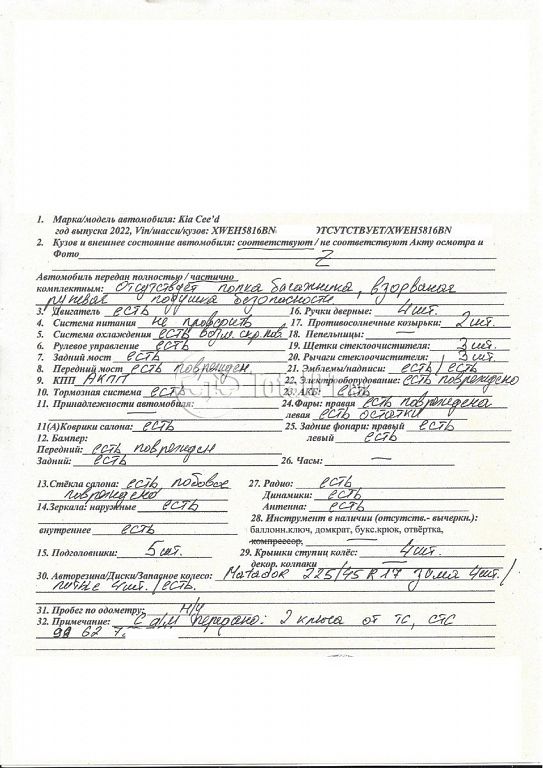 1. Марка/модель автомобиля: Kia Cee'd
год выпуска 2022, Vin/шасси/кузов: XWEH5816BN ОТСУТСТВУЕТ/XWEH5816BN
2. Кузов и внешнее состояние автомобиля: соответствуют / не соответствуют Акту осмотра и
Фото Z
Автомобиль передан полностью / частично
комплектным: отсутствует полка багажника, взорваная
рулевая подушка безопасности
3. Двигатель есть 16. Ручки дверные: 4 шт.
4. Система питания не проверить 17. Противосолнечные козырьки: 2 шт.
5. Система охлаждения есть 18. Пепельницы: —
6. Рулевое управление есть 19. Щетки стеклоочистителя: 3 шт.
7. Задний мост есть 20. Рычаги стеклоочистителя: 3 шт.
8. Передний мост есть поврежден 21. Эмблемы/надписи: есть / есть
9. КПП АКПП 22. Электрооборудование: есть повреждено
10. Тормозная система есть 23. АКБ: есть
11. Принадлежности автомобиля: 24.Фары: правая есть повреждена
левая есть остатки
11(А)Коврики салона: есть 25. Задние фонари: правый есть
12. Бампер: левый есть
Передний: есть поврежден
Задний: есть 26. Часы: —
13.Стёкла салона: есть лобовое 27. Радио: есть
повреждено Динамики: есть
14.Зеркала: наружные есть Антенна: есть
28. Инструмент в наличии (отсутств.- вычеркн.):
внутреннее есть баллонн.ключ, домкрат, букс.крюк, отвёртка,
компрессор, —
15. Подголовники: 5 шт. 29. Крышки ступиц колёс: 4 шт.
декор. колпаки
30. Авторезина/Диски/Запасное колесо: Matador 225/45 R17 зима 4 шт. /
литые 4 шт. / есть.
31. Пробег по одометру: н/у
32. Примечание: С а/м передано: 2 ключа от ТС, СТС
99 62